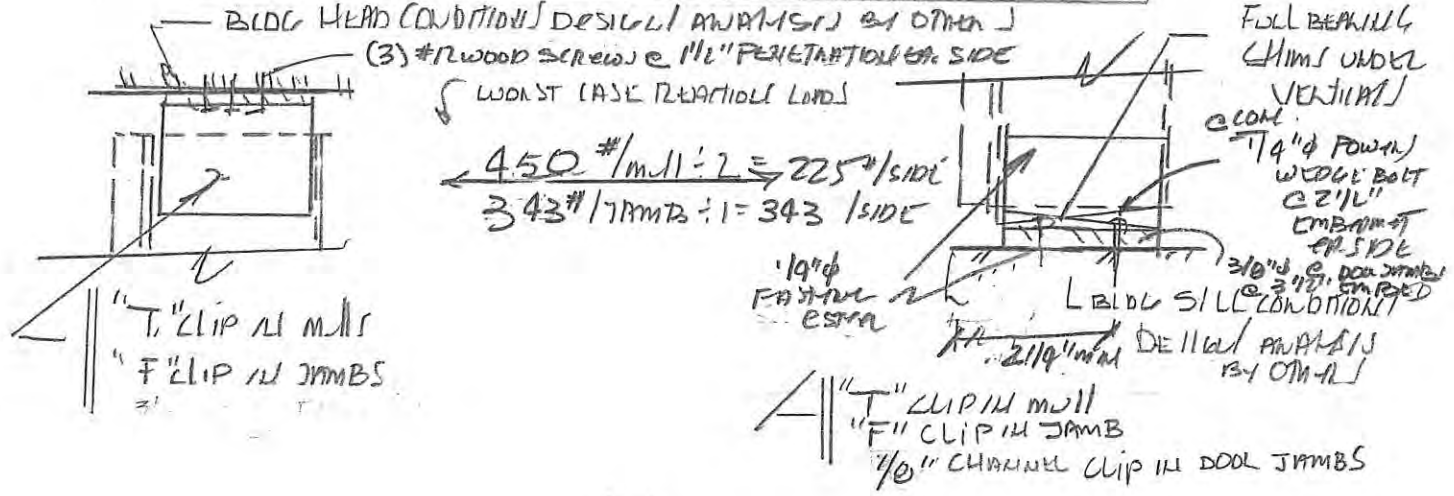 BLDG HEAD CONDITIONS DESIGN / ANALYSIS BY OTHERS
(3) #12 WOOD SCREWS @ 1 1/2" PENETRATION EA. SIDE
WORST CASE REACTION LOADS
450 #/mull ÷ 2 = 225 #/SIDE
343 #/JAMB ÷ 1 = 343 /SIDE
"T" CLIP IN MULLS
"F" CLIP IN JAMBS
FULL BEARING
SHIMS UNDER
VERTICALS
@ CONC.
1/4"φ POWERS
WEDGE BOLT
@ 2 1/2"
EMBEDMENT
EA. SIDE
3/8"φ @ DOOR JAMBS
@ 3 1/2" EMBED
1/4"φ
FASTENER
BLDG SILL CONDITIONS
DESIGN / ANALYSIS
BY OTHERS
2 1/4" min
"T" CLIP IN MULL
"F" CLIP IN JAMB
1/8" CHANNEL CLIP IN DOOR JAMBS